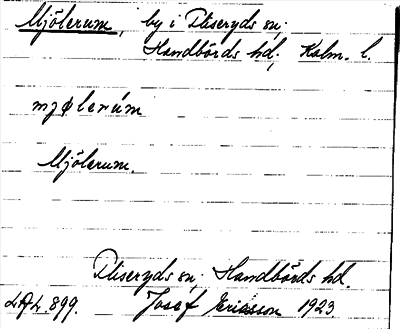 Mjölerum, by i Fliseryds sn;
Handbörds hd, Kalm. l.
mjølerúm
Mjölerum.
Fliseryds sn. Handbörds hd.
LAL. 899. Josef Ericsson 1923